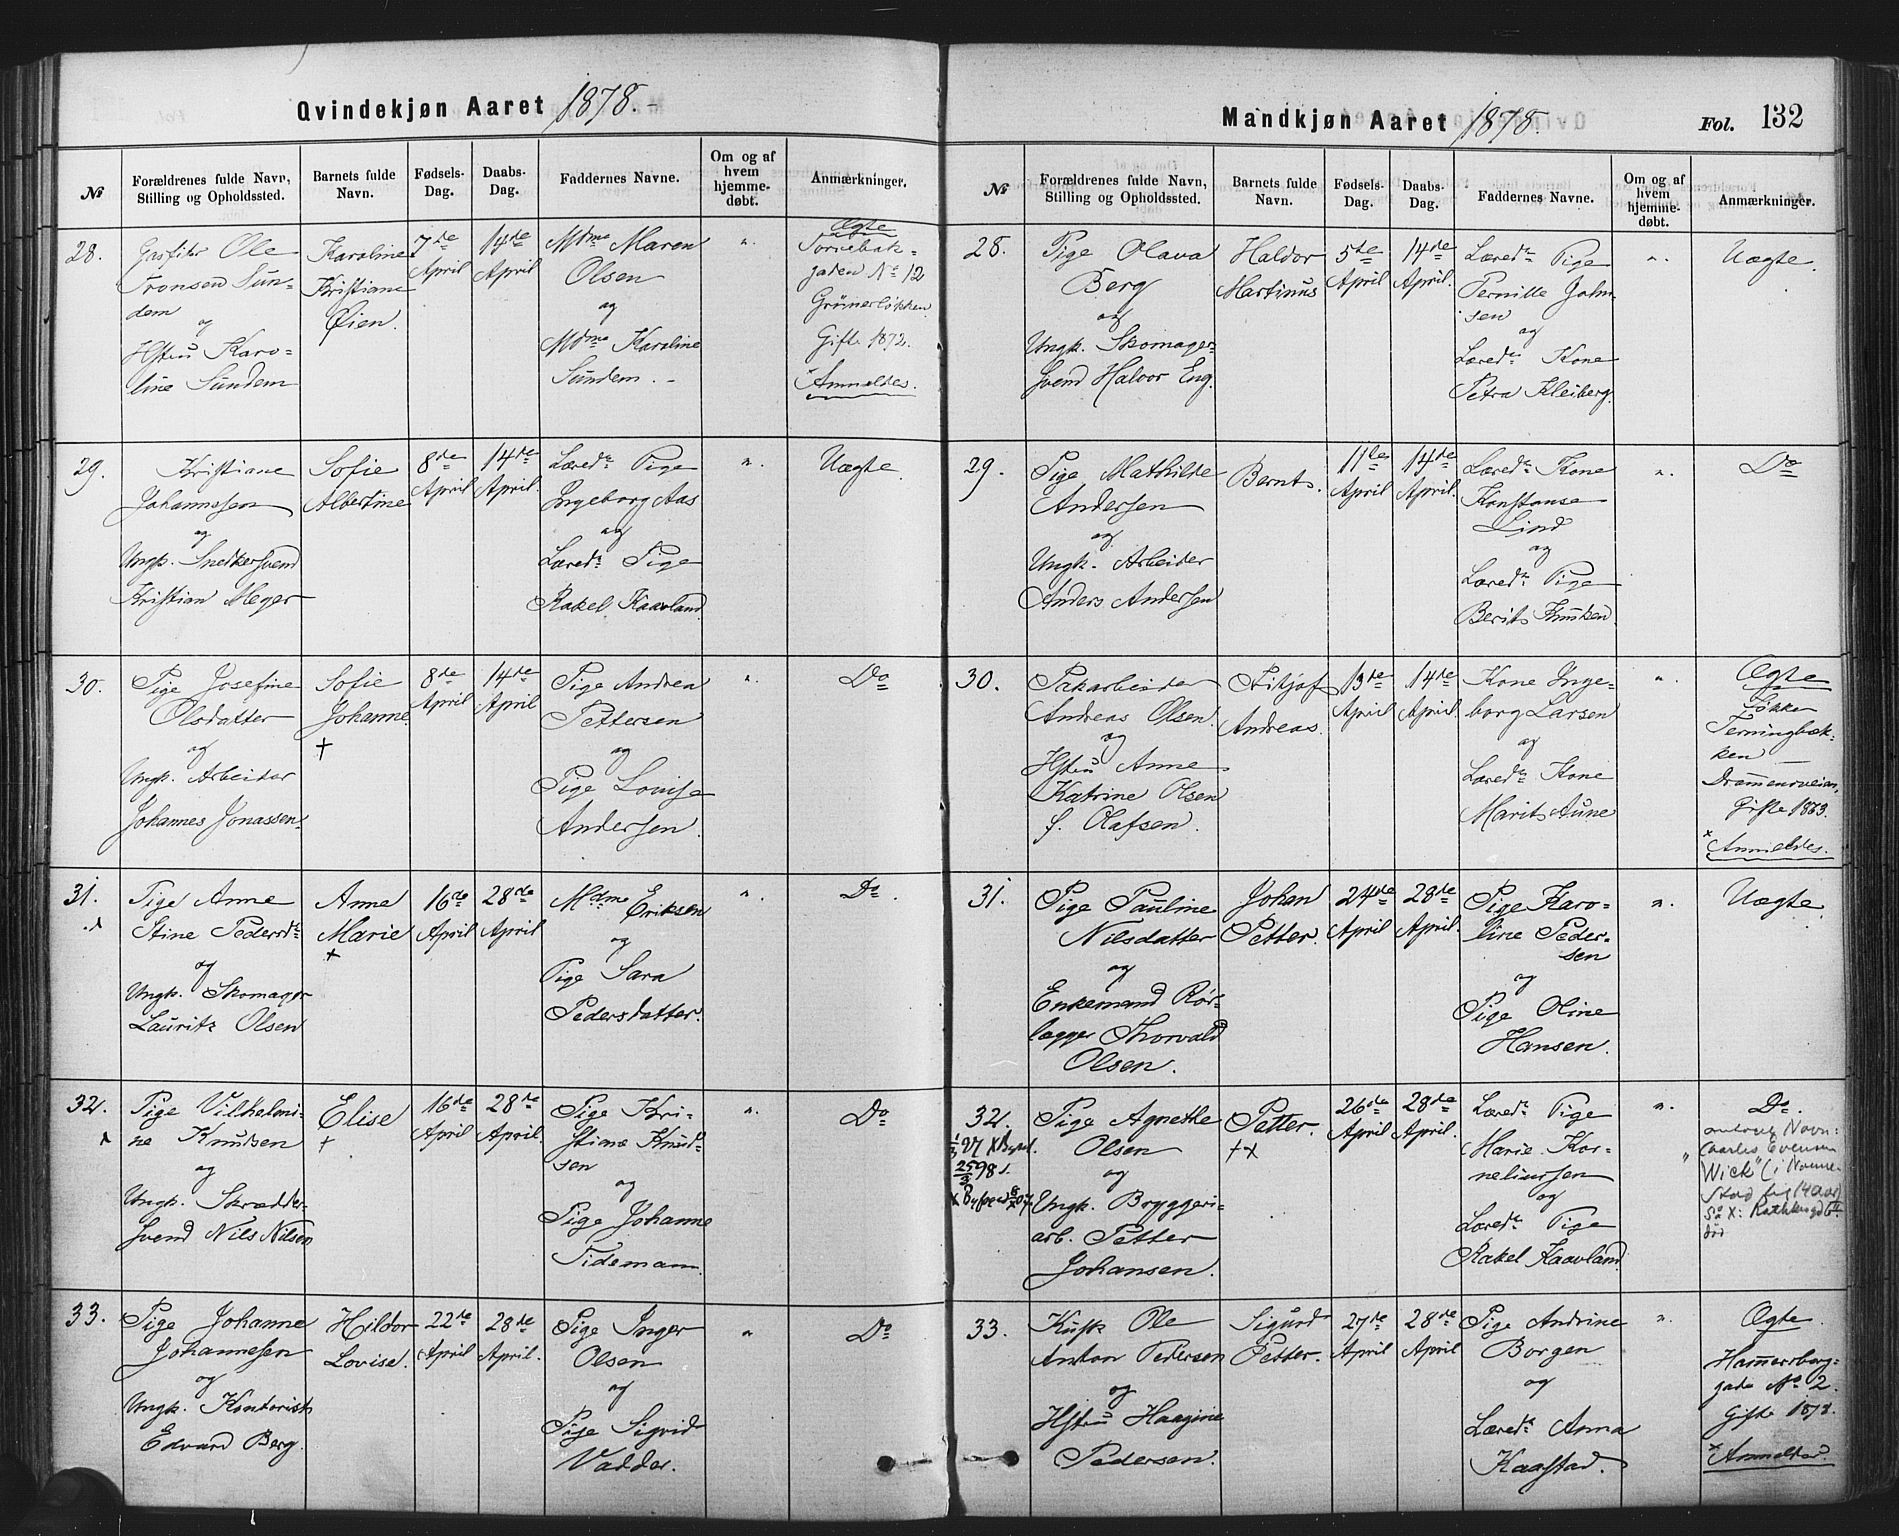 Qvindekjøn Aaret 1878.
№
Forældrenes fulde Navn,
Stilling og Opholdssted.
Barnets fulde
Navn.
Fødsels-
Dag.
Daabs-
Dag.
Faddernes Navne.
Om og af
hvem
hjemme-
døbt.
Anmærkninger.
28.
Gasfiter Ole
Tronsen Sun-
dem
og
Hstru Karo-
line Sundem
Karoline
Kristiane
Øien.
7de
April
14de
April
Mdme Maren
Olsen
og
Mdme Karoline
Sundem.
"
Ægte
Tornebak-
gaden No 12
Grünerløkken
Gifte 1872.
Anmeldes.
29.
Kristiane
Johannssen
og
Ungk. Snedkersvend
Kristian Meyer
Sofie
Albertine
8de
April
14de
April.
Læredr Pige
Ingeborg Aas
og
Læredr Pige
Rakel Kaavland
"
Uægte
30.
Pige Josefine
Olsdatter
og
Ungk. Arbeider
Johannes Jonassen.
Sofie
Johanne
†
8de
April
14de
April
Pige Andrea
Pettersen
og
Pige Lovise
Andersen.
"
Do
31.
Pige Anne
Stine Pedersdr
og
Ungk. Skomager
Lauritz Olsen
Anne
Marie
+
16de
April
28de
April
Mdme Eriksen
og
Pige Sara
Pedersdatter.
"
Do
32.
Pige Vilhelmi-
ne Knudsen
og
Ungk. Skrædder-
svend Nils Nilsen
Elise
+
16de
April
28de
April
Pige Kri-
stiane Knud-
sen
og
Pige Johanne
Tidemann.
"
Do
33.
Pige Johanne
Johannesen
og
Ungk. Kontorist
Edvard Berg.
Hildor
Lovise.
22de
April
28de
April.
Pige Inger
Olsen
og
Pige Sigrid
Vadder.
"
Do
Mandkjøn Aaret 1878
Fol. 132
№
Forældrenes fulde Navn,
Stilling og Opholdssted.
Barnets fulde
Navn.
Fødsels-
Dag.
Daabs-
Dag.
Faddernes Navne.
Om og af
hvem
hjemme-
døbt.
Anmærkninger.
28.
Pige Olava
Berg
og
Ungk. Skomager-
svend Halvor Eng.
Haldor
Martinus
5te
April
14de
April.
Læredr Pige
Pernille John-
sen
og
Læredr Kone
Petra Kleiberg.
"
Uægte
29.
Pige Mathilde
Andersen
og
Ungk. Arbeider
Anders Andersen
Bernt.
11te
April
14de
April.
Læredr Kone
Konstanse
Lind
og
Læredr Pige
Berit Knudsen.
"
Do
30.
Andreas Olsen.
og
Hstru Anne
Katrine Olsen
f. Olafsen.
Fritjof
Andreas.
13de
April
14de
April.
Kone Inge-
borg Larsen
og
Læredr Kone
Marit Aune
"
Ægte
Løkken
Terningbæk-
ken
Drammensveien,
Gifte 1863.
Anmeldes.
31.
Pige Pauline
Nilsdatter
og
Enkemand Rør-
lægger Thorvald
Olsen.
Johan
Petter.
24de
April
28de
April.
Pige Karo-
line Peder-
sen
og
Pige Oline
Hansen.
"
Uægte
32.
Pige Agnethe
Olsen
og
Ungk. Bryggeri-
arb. Petter
Johansen.
Petter.
26de
April
28de
April.
Læredr Pige
Marie Kor-
neliussen
og
Læredr Pige
Rakel Kaavland
"
Do.
Navn:
Evensen
Wick" (i
33.
Kusk Ole
Anton Pedersen
og
Hstru Haagine
Pedersen.
Sigurd
Petter.
27de
April
28de
April
Pige Andrine
Borgen
og
Læredr Anna
Kaastad.
"
Ægte
Hammersborg-
gade No 2.
Gifte 1878.
Anmeldes.